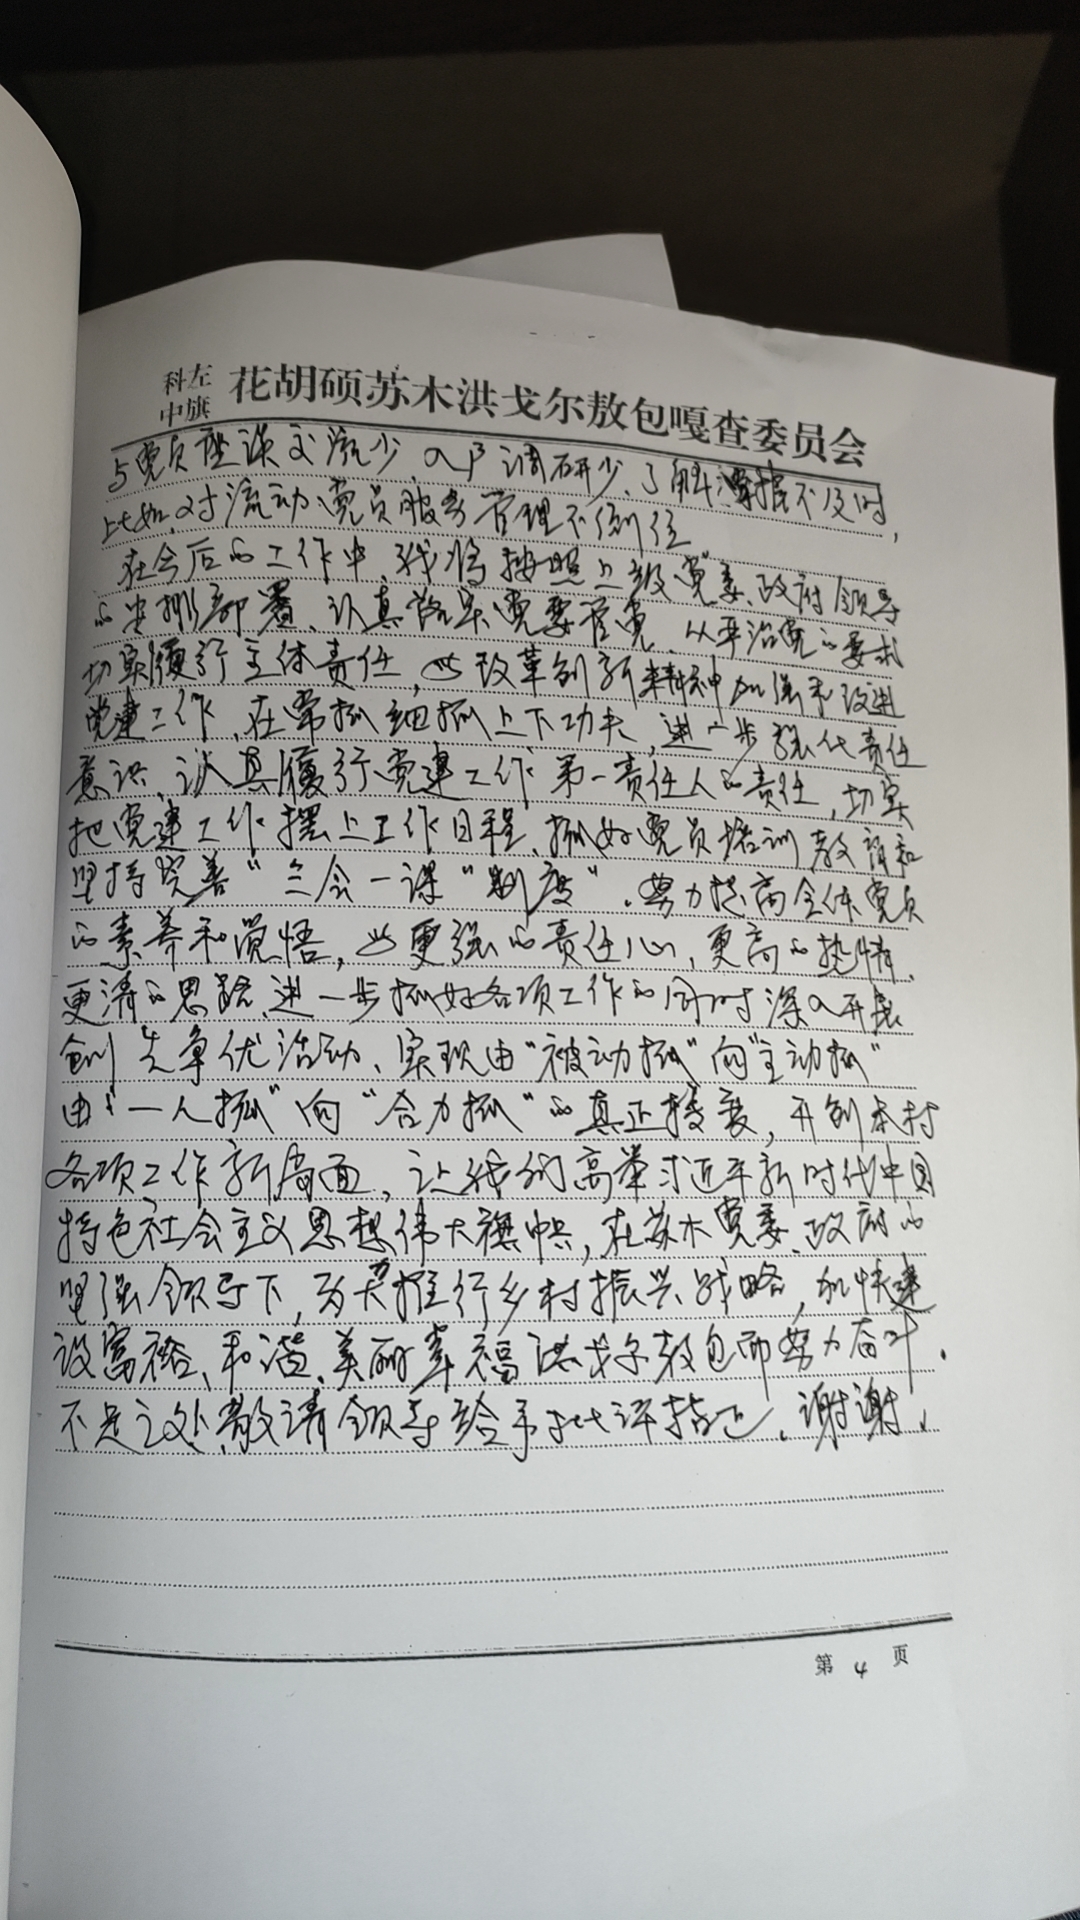 科左中旗 花胡硕苏木洪戈尔敖包嘎查委员会
与党员座谈交流少、入户调研少、了解掌握不及时,
比如,对流动党员服务管理不到位
在今后的工作中,我将按照上级党委、政府领导
的安排部署、认真落实党要管党、从严治党的要求
切实履行主体责任,以改革创新精神加强和改进
党建工作,在常抓细抓上下功夫,进一步强化责任
意识、认真履行党建工作第一责任人的责任,切实
把党建工作摆上工作日程、抓好党员培训教育和
坚持完善“三会一课“制度”、努力提高全体党员
的素养和觉悟,以更强的责任心,更高的热情、
更清的思路,进一步抓好各项工作的同时深入开展
创“先争优活动、实现由“被动抓“向“主动抓“
由“一人抓“向“合力抓“的真正转变,开创本村
各项工作新局面,让我们高举习近平新时代中国
特色社会主义思想伟大旗帜,在苏木党委、政府的
坚强领导下,为大力推行乡村振兴战略,加快建
设富裕、和谐、美丽幸福洪戈尔敖包而努力奋斗.
不足之处,敬请领导给予批评指正、谢谢、
第 4 页